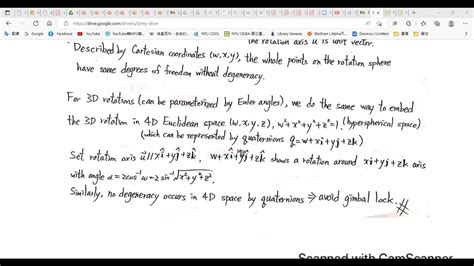 https://drive.google.com/drive/u/0/my-drive
Facebook YouTube NTU COOL Library Genesis Wolfram | Alpha
the rotation axis u is unit vector.
• Described by Cartesian coordinates (w,x,y), the whole points on the rotation sphere
have same degrees of freedom without degeneracy.
For 3D rotations (can be parameterized by Euler angles), we do the same way to embed
the 3D rotation in 4D Euclidean space (w,x,y,z), w²+x²+y²+z²=1. (hyperspherical space)
(which can be represented by quaternions q=w+xi+yj+zk)
Set rotation axis û//xî+yĵ+zk̂, w+xî+yĵ+zk̂ shows a rotation around xi+yj+zk axis
with angle α=2cos⁻¹w=2sin⁻¹√x²+y²+z².
Similarly, no degeneracy occurs in 4D space by quaternions ⇒ avoid gimbal lock.#
Scanned with CamScanner